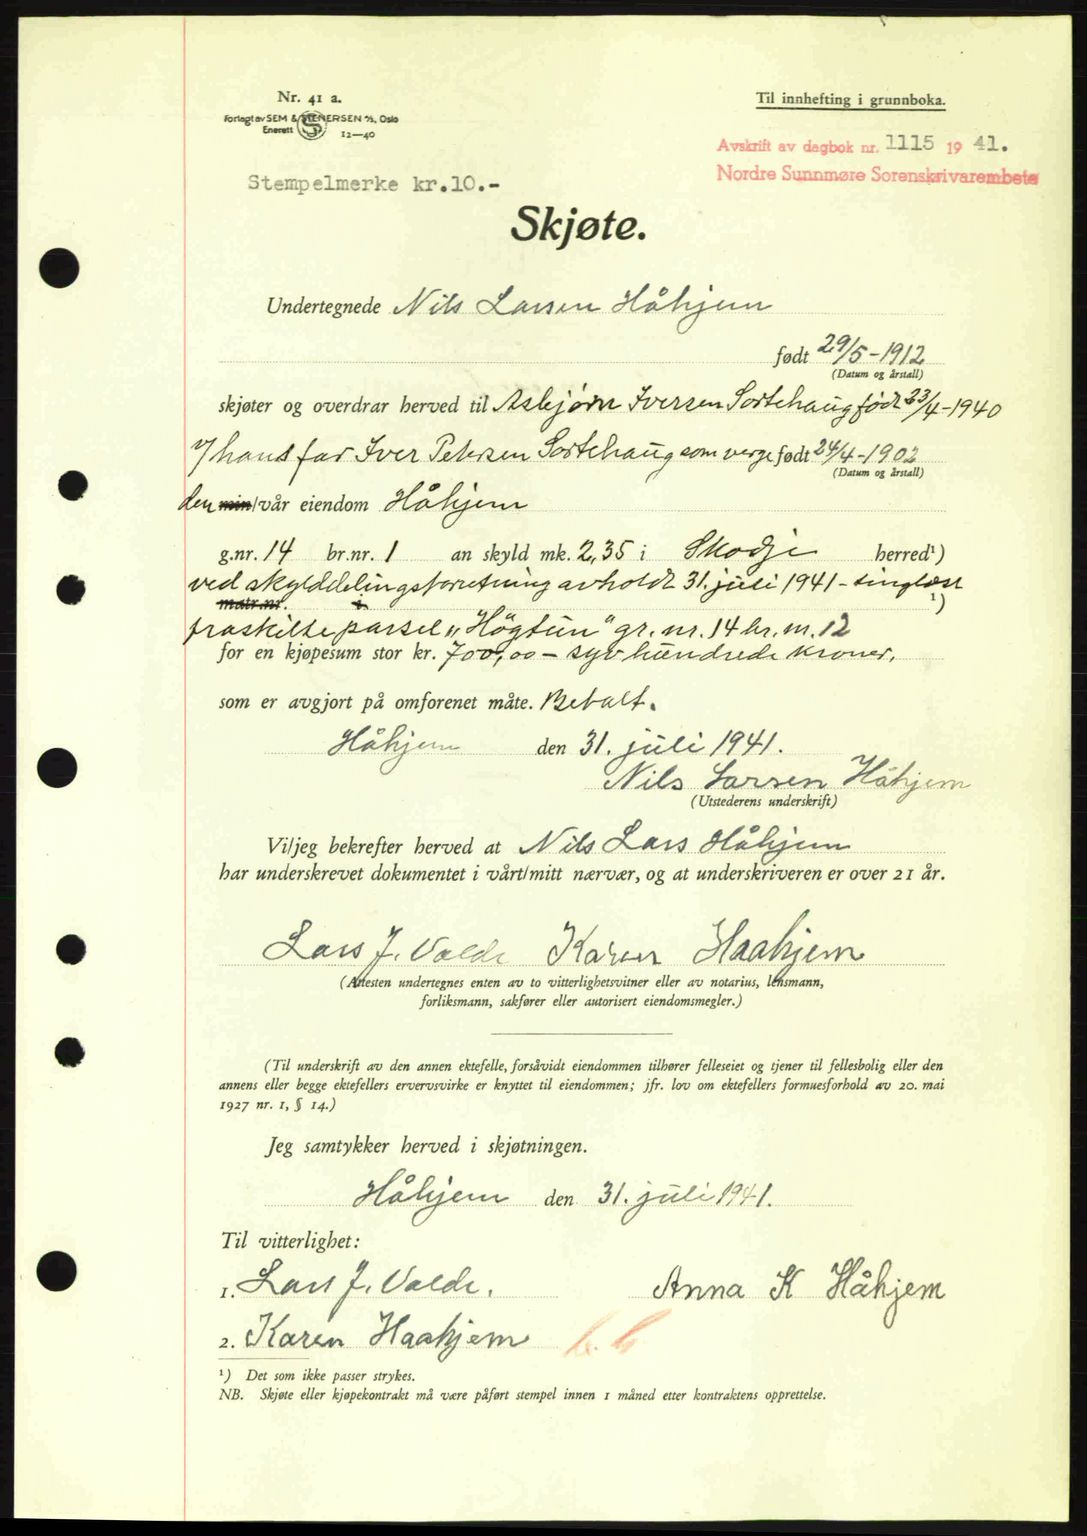 Nr. 41 a.
Forlagt av SEM & STENERSEN A/S, Oslo
Enerett S 12—40
Til innhefting i grunnboka.
Avskrift av dagbok nr. 1115 19 41.
Nordre Sunnmøre Sorenskrivarembete
Stempelmerke kr.10.-
Skjøte.
Undertegnede Nils Larsen Håhjem
født 29/5-1912
(Datum og årstall)
skjøter og overdrar herved til Asbjørn Iversen Sortehaug født 23/4-1940
v/ hans far Iver Petersen Sortehaug som verge født 24/4-1902
(Datum og årstall)
den min/vår eiendom Håhjem
g.nr. 14 br.nr. 1 an skyld mk. 2,35 i Skodje herred¹)
ved skylddelingsforretning avholdt 31. juli 1941 - tinglæst
matr.nr. i ¹)
fraskilte parsel „Høgtun" gr. nr. 14 br. nr. 12
for en kjøpesum stor kr. 700,00 - syv hundrede kroner.
som er avgjort på omforenet måte. Betalt.
Håhjem den 31. juli 1941.
Nils Larsen Håhjem
(Utstederens underskrift)
Vi/jeg bekrefter herved at Nils Lars Håhjem
har underskrevet dokumentet i vårt/mitt nærvær, og at underskriveren er over 21 år.
Lars J. Valde Karen Haahjem
(Attesten undertegnes enten av to vitterlighetsvitner eller av notarius, lensmann,
forliksmann, sakfører eller autorisert eiendomsmegler.)
(Til underskrift av den annen ektefelle, forsåvidt eiendommen tilhører felleseiet og tjener til fellesbolig eller den
annens eller begge ektefellers ervervsvirke er knyttet til eiendommen; jfr. lov om ektefellers formuesforhold av 20. mai
1927 nr. 1, § 14.)
Jeg samtykker herved i skjøtningen.
Håhjem den 31. juli 1941.
Til vitterlighet:
1. Lars J. Valde. Anna K Håhjem
2. Karen Haahjem
¹) Det som ikke passer strykes.
NB. Skjøte eller kjøpekontrakt må være påført stempel innen 1 måned etter kontraktens opprettelse.